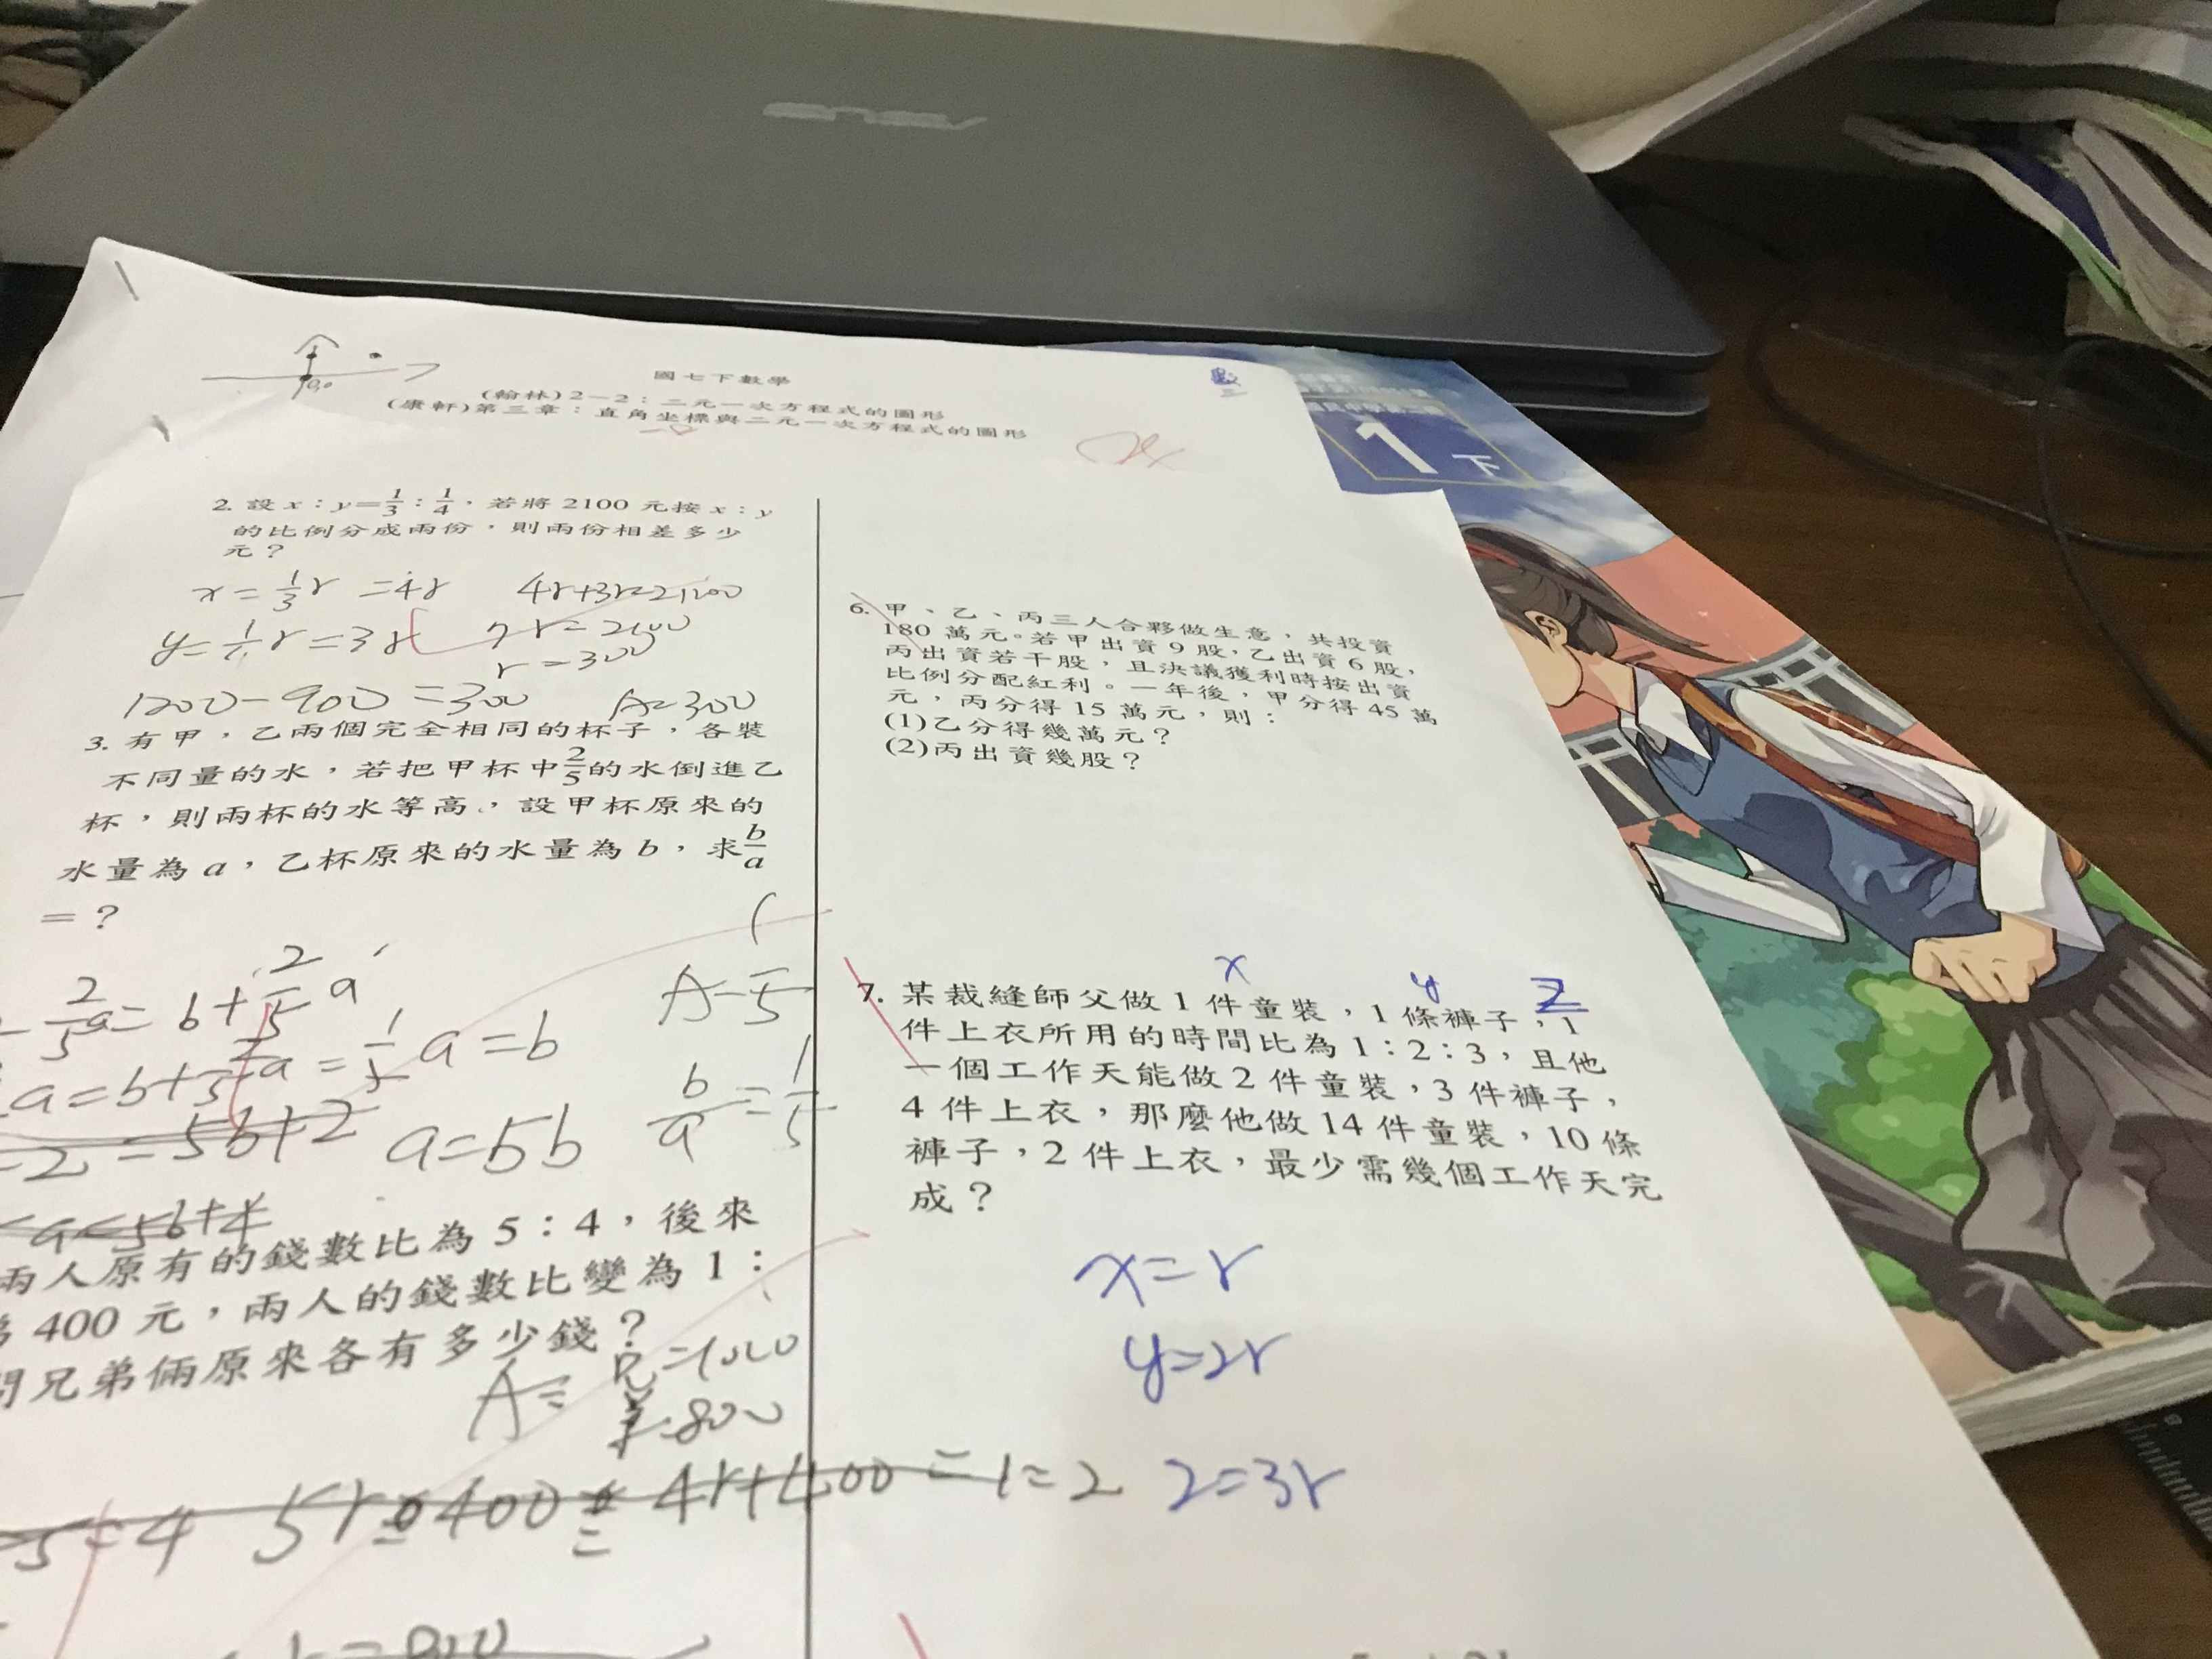 ASUS
國七下數學
(翰林)2-2:二元一次方程式的圖形
(康軒)第三章:直角坐標與二元一次方程式的圖形
2. 設x:y=1/3:1/4,若將2100元按x:y
的比例分成兩份,則兩份相差多少
元?
x=1/3r =4r 4r+3r=2100
y=1/4r=3r 7r=2100
r=300
1200-900=300 A=300
3. 有甲,乙兩個完全相同的杯子,各裝
不同量的水,若把甲杯中2/5的水倒進乙
杯,則兩杯的水等高,設甲杯原來的
水量為a,乙杯原來的水量為b,求b/a
=?
2/5a=b+2/5a
A=1/5
a=b+2/5a=1/5a=b
b/a=1/5
-2=5b+2 a=5b
a=5b+4
兩人原有的錢數比為5:4,後來
400元,兩人的錢數比變為1:
問兄弟倆原來各有多少錢?
A= 兄=1000
弟=800
5=4 5r-400=4r+400=1=2
6. 甲、乙、丙三人合夥做生意,共投資
180萬元。若甲出資9股,乙出資6股,
丙出資若干股,且決議獲利時按出資
比例分配紅利。一年後,甲分得45萬
元,丙分得15萬元,則:
(1)乙分得幾萬元?
(2)丙出資幾股?
x y z
7. 某裁縫師父做1件童裝,1條褲子,1
件上衣所用的時間比為1:2:3,且他
一個工作天能做2件童裝,3件褲子,
4件上衣,那麼他做14件童裝,10條
褲子,2件上衣,最少需幾個工作天完
成?
x=r
y=2r
z=3r
1下